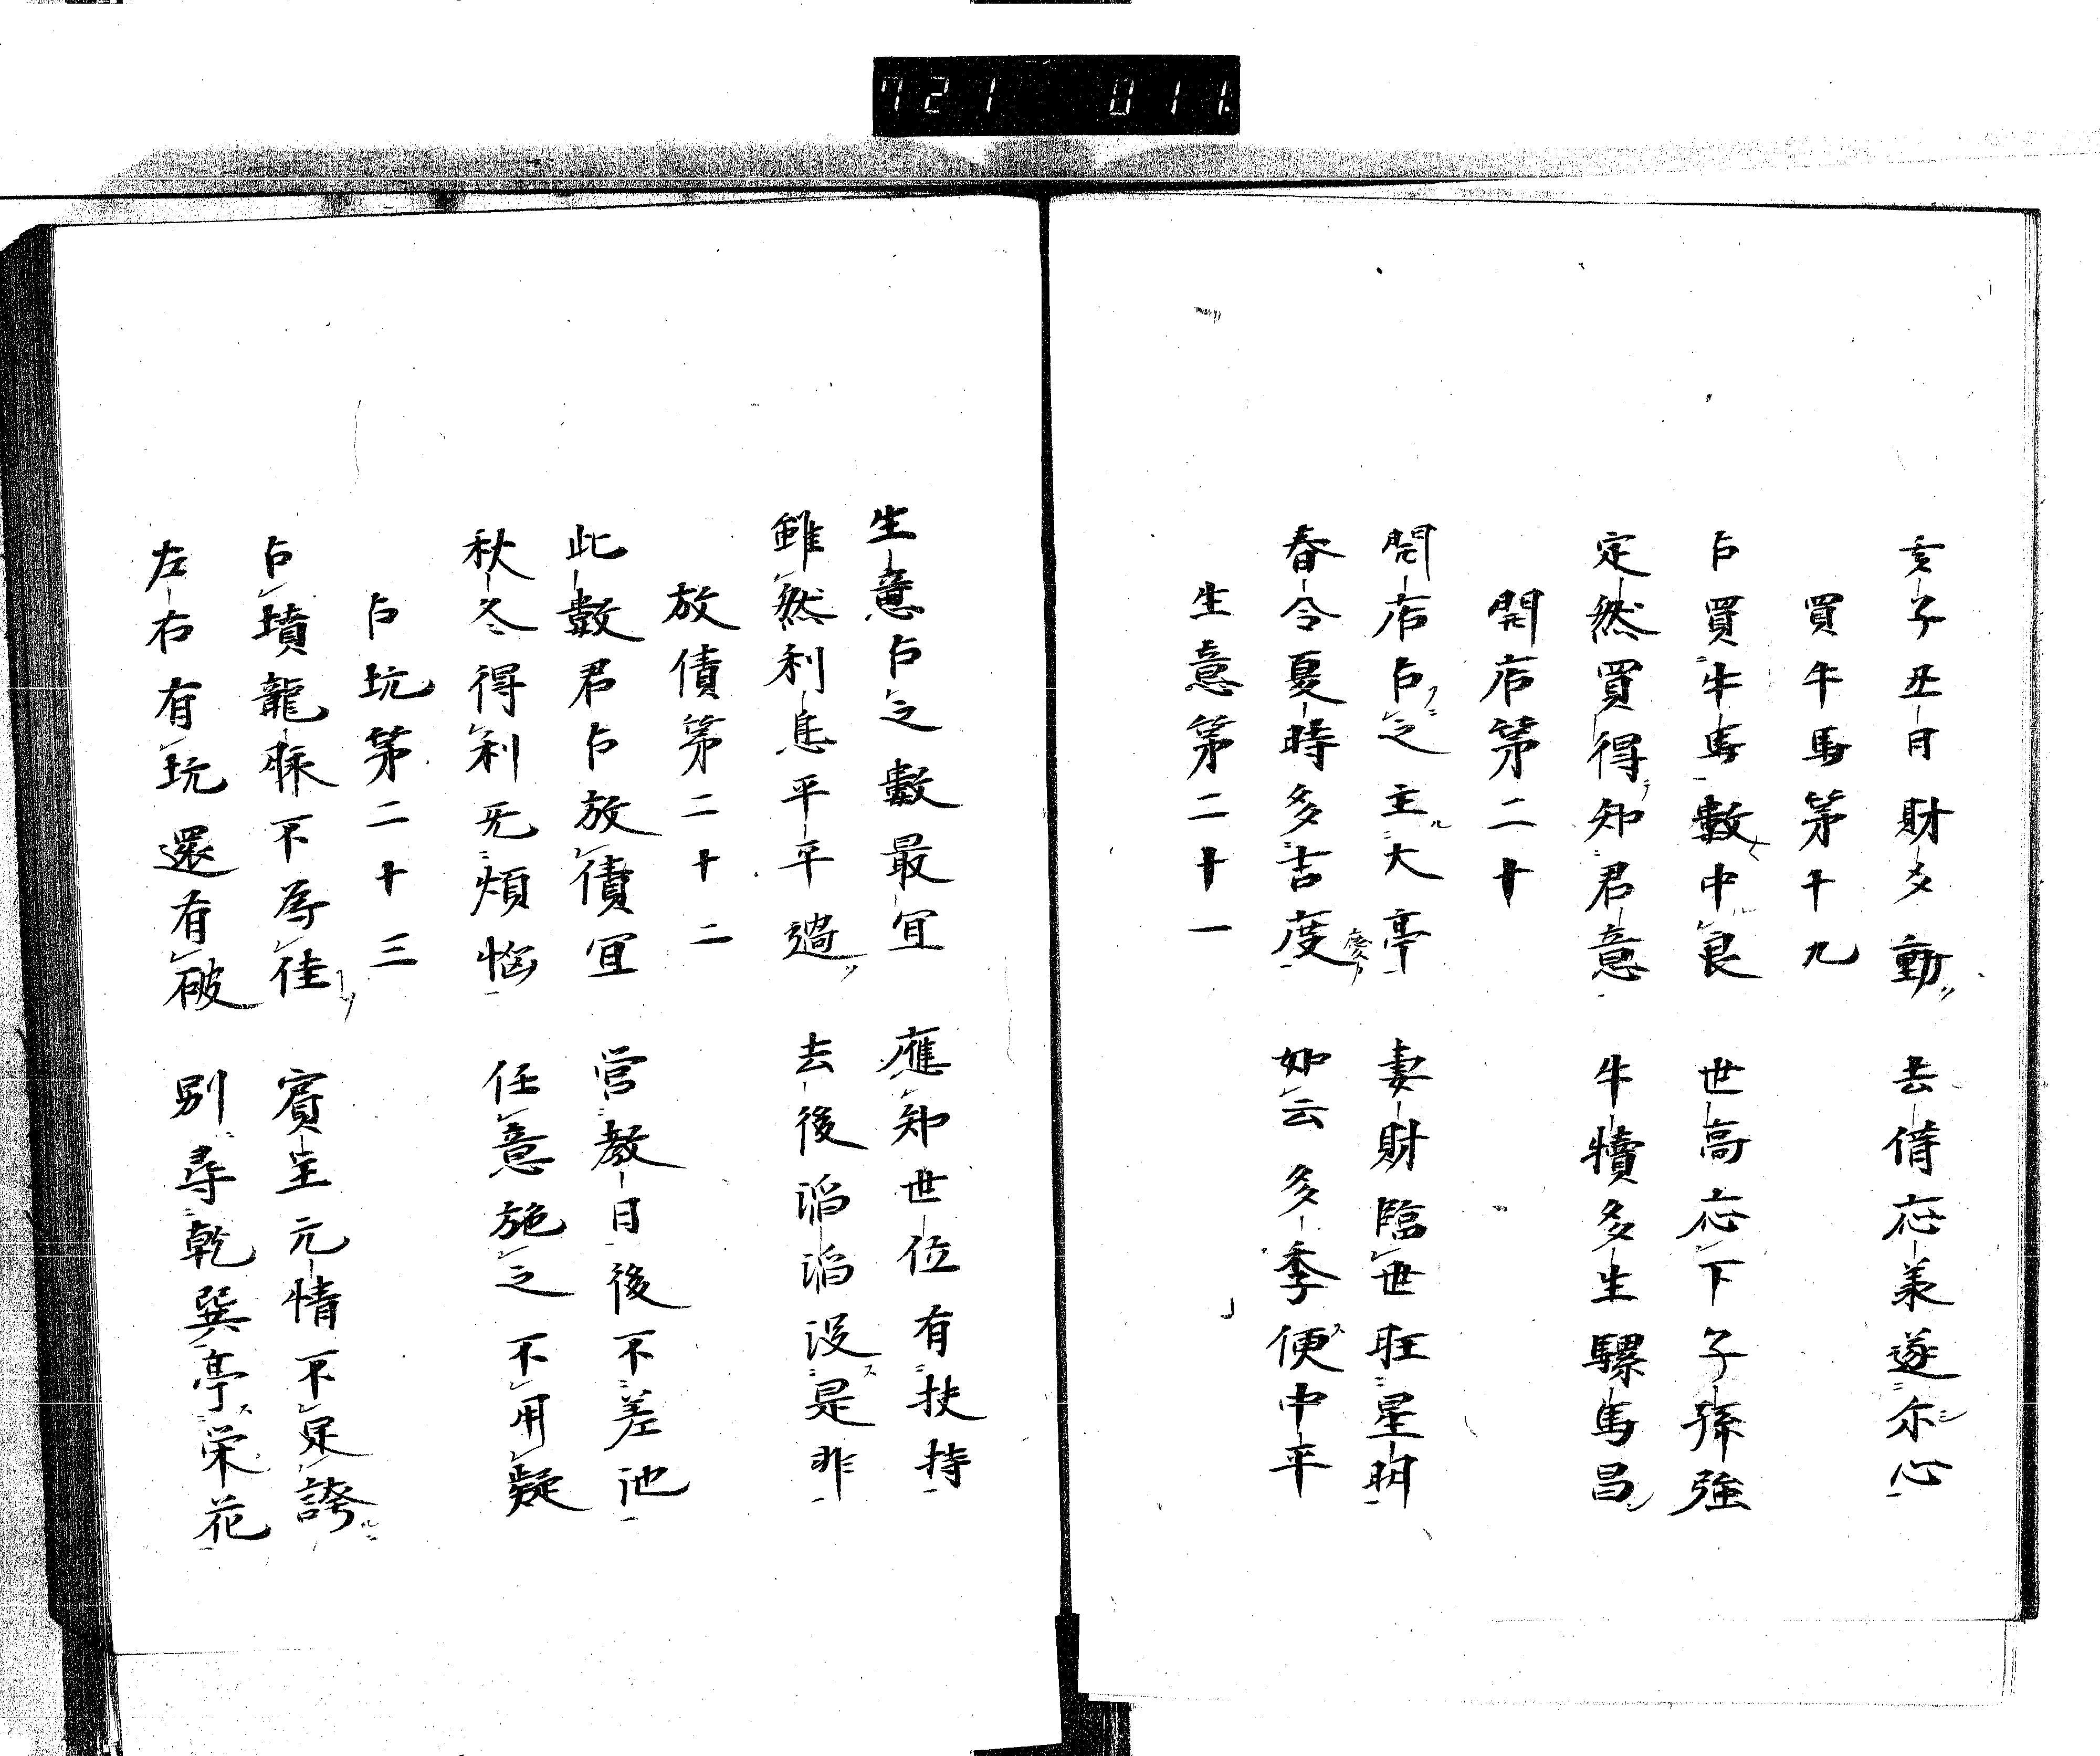 721 011
亥子丑日財爻動 去倚応羕遂尓心
買牛馬第十九
占買牛馬數中良 世高応下子孫強
定然買得知君意 牛犢多生騾馬昌
開店第二十
開店占之主大亭 妻財臨世旺星明
春令夏時多吉度 如云多季便中平
生意第二十一
生意占之數最宜 應知世位有扶持
雖然利息平平過 去後滔滔没是非
放債第二十二
此數君占放債宜 管教日後不差池
秋冬得利无煩惱 任意施之不用疑
占坑第二十三
占墳龍脉不為佳 賓主元情不足誇
左右有坑還有破 別尋乾巽亭栄花